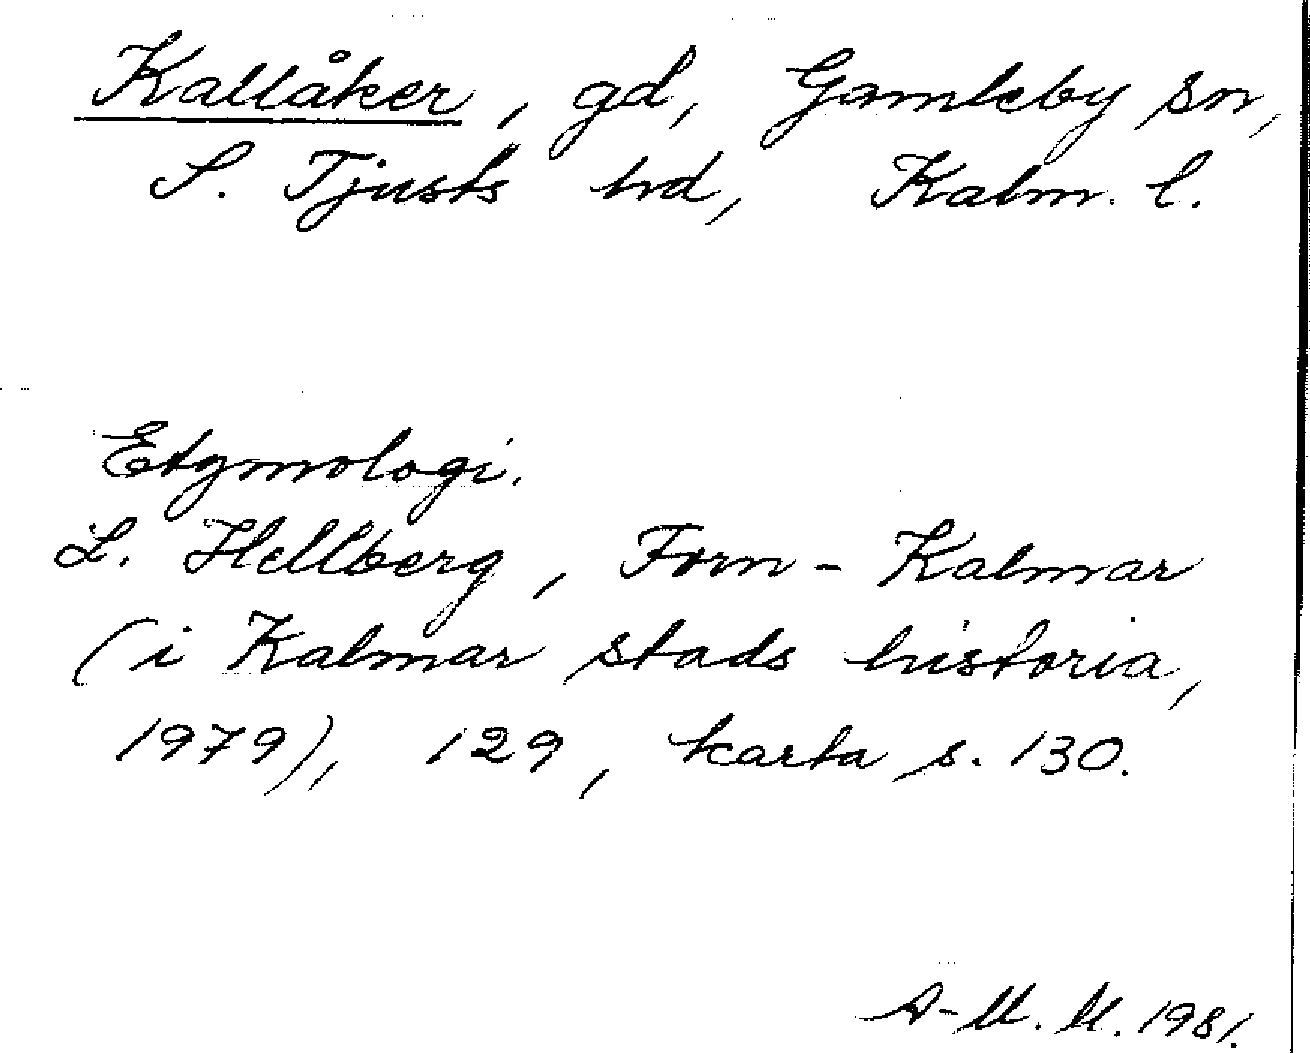 Kallåker, gd, Gamleby sn,
S. Tjusts hd, Kalm. l.
Etymologi.
L. Hellberg, Forn-Kalmar
(i Kalmar stads historia,
1979), 129, karta s. 130.
A-M. M. 1981.